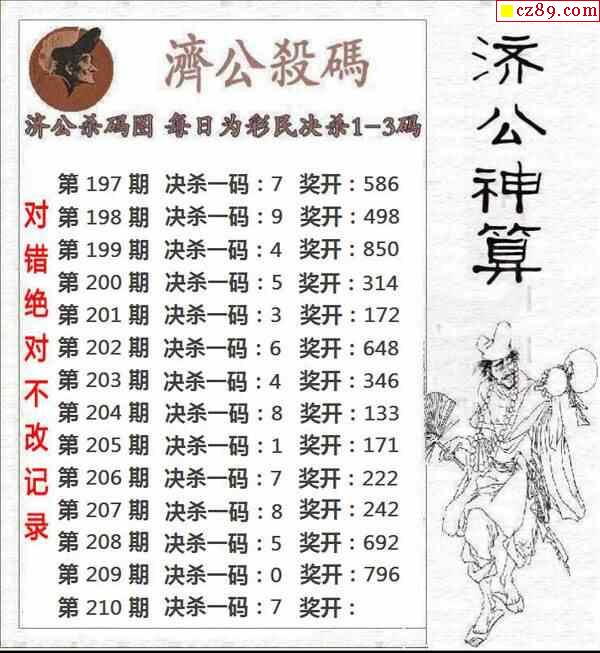 cz89.com
濟公殺碼
济公杀码图 每日为彩民决杀1-3码
第 197 期 决杀一码：7 奖开：586
第 198 期 决杀一码：9 奖开：498
第 199 期 决杀一码：4 奖开：850
第 200 期 决杀一码：5 奖开：314
第 201 期 决杀一码：3 奖开：172
第 202 期 决杀一码：6 奖开：648
第 203 期 决杀一码：4 奖开：346
第 204 期 决杀一码：8 奖开：133
第 205 期 决杀一码：1 奖开：171
第 206 期 决杀一码：7 奖开：222
第 207 期 决杀一码：8 奖开：242
第 208 期 决杀一码：5 奖开：692
第 209 期 决杀一码：0 奖开：796
第 210 期 决杀一码：7 奖开：
对错绝对不改记录
济公神算